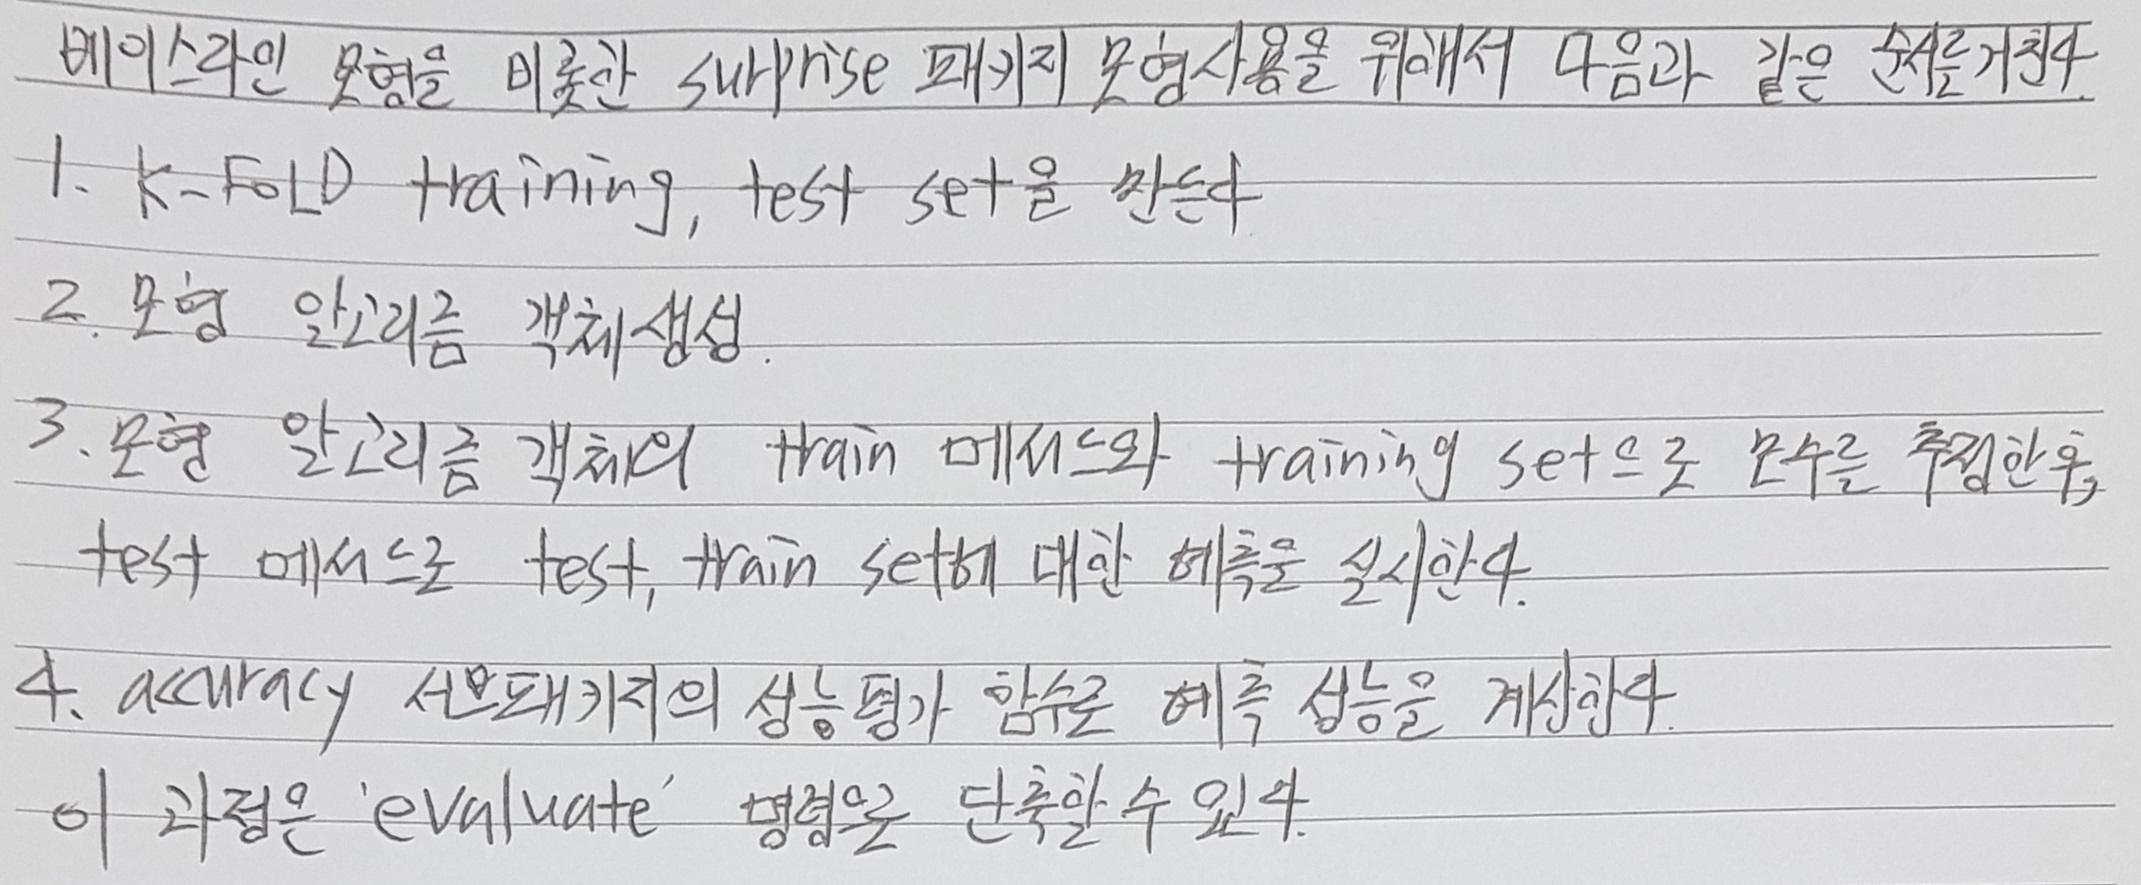 베이스라인 모형을 비롯한 surprise 패키지 모형사용을 위해서 다음과 같은 순서를거친다.
1. K-FOLD training, test set을 만든다
2. 모형 알고리즘 객체생성.
3. 모형 알고리즘 객체의 train 메서드와 training set으로 모수를 추정한후,
test 메서드로 test, train set에 대한 예측을 실시한다.
4. accuracy 서브패키지의 성능평가 함수로 예측 성능을 계산한다.
이 과정은 'evaluate' 명령으로 단축할 수 있다.